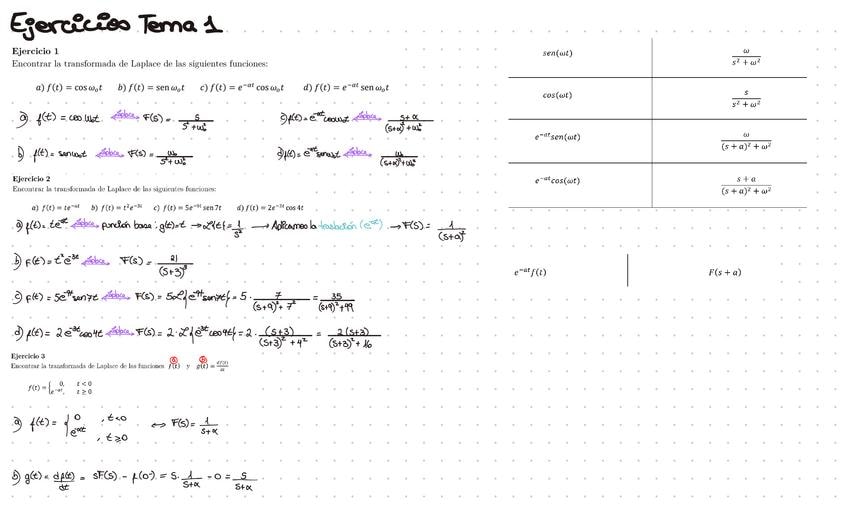 Ejercicios Tema 1
Ejercicio 1
Encontrar la transformada de Laplace de las siguientes funciones:
a) f(t) = cos ω₀t b) f(t) = sen ω₀t c) f(t) = e^−at cos ω₀t d) f(t) = e^−at sen ω₀t
a) f(t) = cos ω₀t Laplace F(s) = s / (s² + ω₀²)
c) f(t) = e^-αt cos ω₀t Laplace (s+α) / ((s+α)² + ω₀²)
b) f(t) = sen ω₀t Laplace F(s) = ω₀ / (s² + ω₀²)
d) f(t) = e^-αt sen ω₀t Laplace ω₀ / ((s+α)² + ω₀²)
Ejercicio 2
Encontrar la transformada de Laplace de las siguientes funciones:
a) f(t) = te^−at b) f(t) = t²e^−3t c) f(t) = 5e^−9t sen 7t d) f(t) = 2e^−3t cos 4t
a) f(t) = te^-αt Laplace función base: g(t) = t → ℒ{t} = 1/s² → Aplicamos la traslación (e^-αt) → F(s) = 1 / (s+α)²
b) f(t) = t²e^-3t Laplace F(s) = 2! / (s+3)³
c) f(t) = 5e^-9t sen7t Laplace F(s) = 5ℒ{e^-9t sen7t} = 5 · 7 / ((s+9)² + 7²) = 35 / ((s+9)² + 49)
d) f(t) = 2e^-3t cos4t Laplace F(s) = 2·ℒ{e^-3t cos4t} = 2 · (s+3) / ((s+3)² + 4²) = 2(s+3) / ((s+3)² + 16)
Ejercicio 3
Encontrar la transformada de Laplace de las funciones f(t) y g(t) = df(t)/dt
f(t) = { 0, t < 0
e^−at, t ≥ 0
a) f(t) = { 0 , t<0 ⟺ F(s) = 1 / (s+α)
e^-αt , t≥0
b) g(t) = df(t)/dt = sF(s) − f(0⁻) = s · 1/(s+α) − 0 = s / (s+α)
sen(ωt) ω / (s² + ω²)
cos(ωt) s / (s² + ω²)
e^−at sen(ωt) ω / ((s + a)² + ω²)
e^−at cos(ωt) (s + a) / ((s + a)² + ω²)
e^−at f(t) F(s + a)